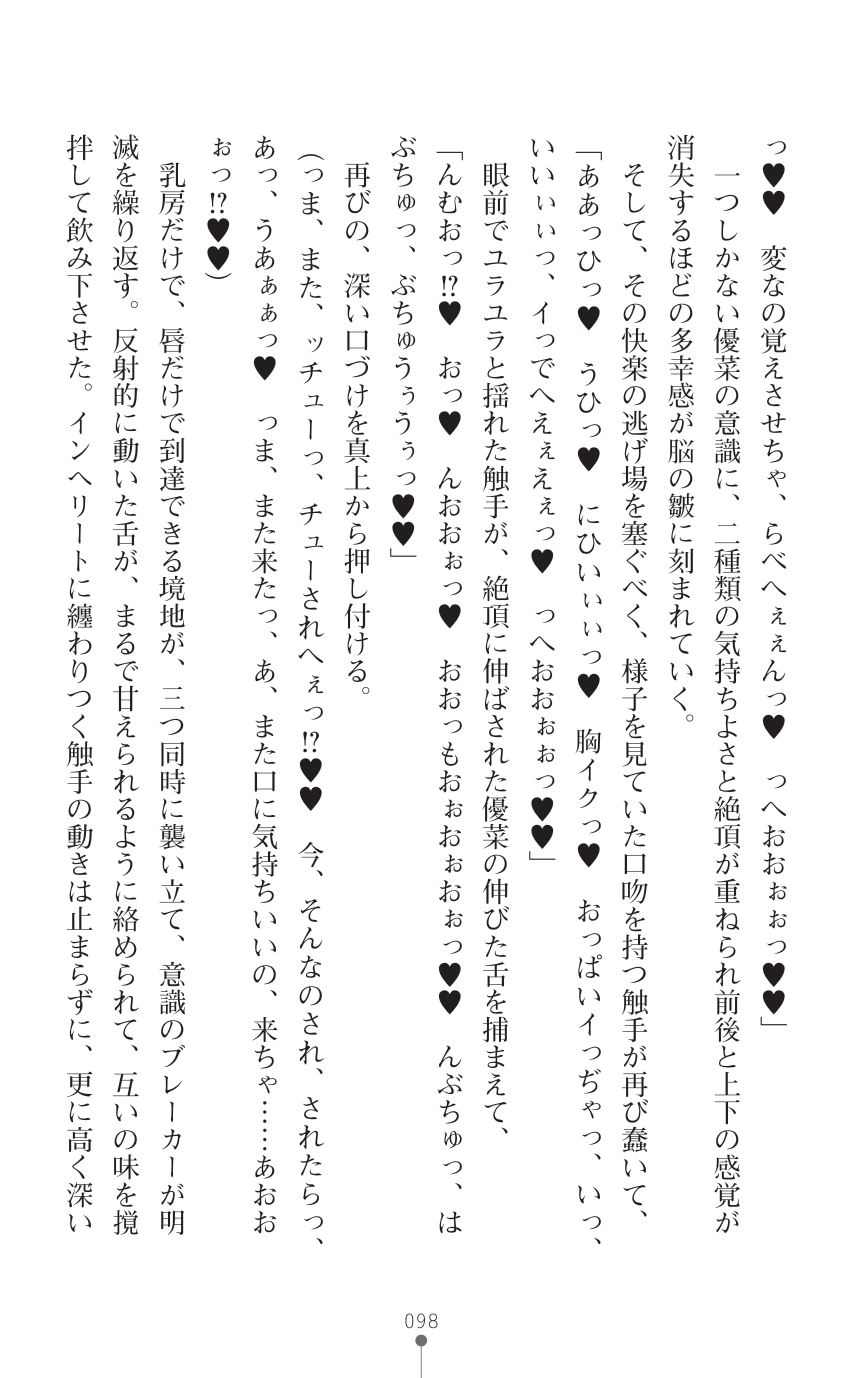 っ♥♥　変なの覚えさせちゃ、らべへぇぇんっ♥　っへおおぉぉっ♥♥」
　一つしかない優菜の意識に、二種類の気持ちよさと絶頂が重ねられ前後と上下の感覚が
消失するほどの多幸感が脳の皺に刻まれていく。
　そして、その快楽の逃げ場を塞ぐべく、様子を見ていた口吻を持つ触手が再び蠢いて、
「ぁあっひっ♥　うひっ♥　にひいぃぃっ♥　胸イクっ♥　おっぱいイっぢゃっ、いっ、
いいぃぃっ、イっでへえぇえぇっ♥　っへおおぉぉっ♥♥」
　眼前でユラユラと揺れた触手が、絶頂に伸ばされた優菜の伸びた舌を捕まえて、
「んむおっ!?♥　おっ♥　んおおぉっ♥　おおっもおぉおぉおぉっ♥♥　んぶちゅっ、は
ぶちゅっ、ぶちゅうぅうぅっ♥♥」
　再びの、深い口づけを真上から押し付ける。
（っま、また、ッチューっ、チューされへぇっ!?♥♥　今、そんなのされ、されたらっ、
あっ、うあぁぁっ♥　っま、また来たっ、あ、また口に気持ちいいの、来ちゃ……あおお
ぉっ!?♥♥）
　乳房だけで、唇だけで到達できる境地が、三つ同時に襲い立て、意識のブレーカーが明
滅を繰り返す。反射的に動いた舌が、まるで甘えられるように絡められて、互いの味を撹
拌して飲み下させた。インヘリートに纏わりつく触手の動きは止まらずに、更に高く深い
098